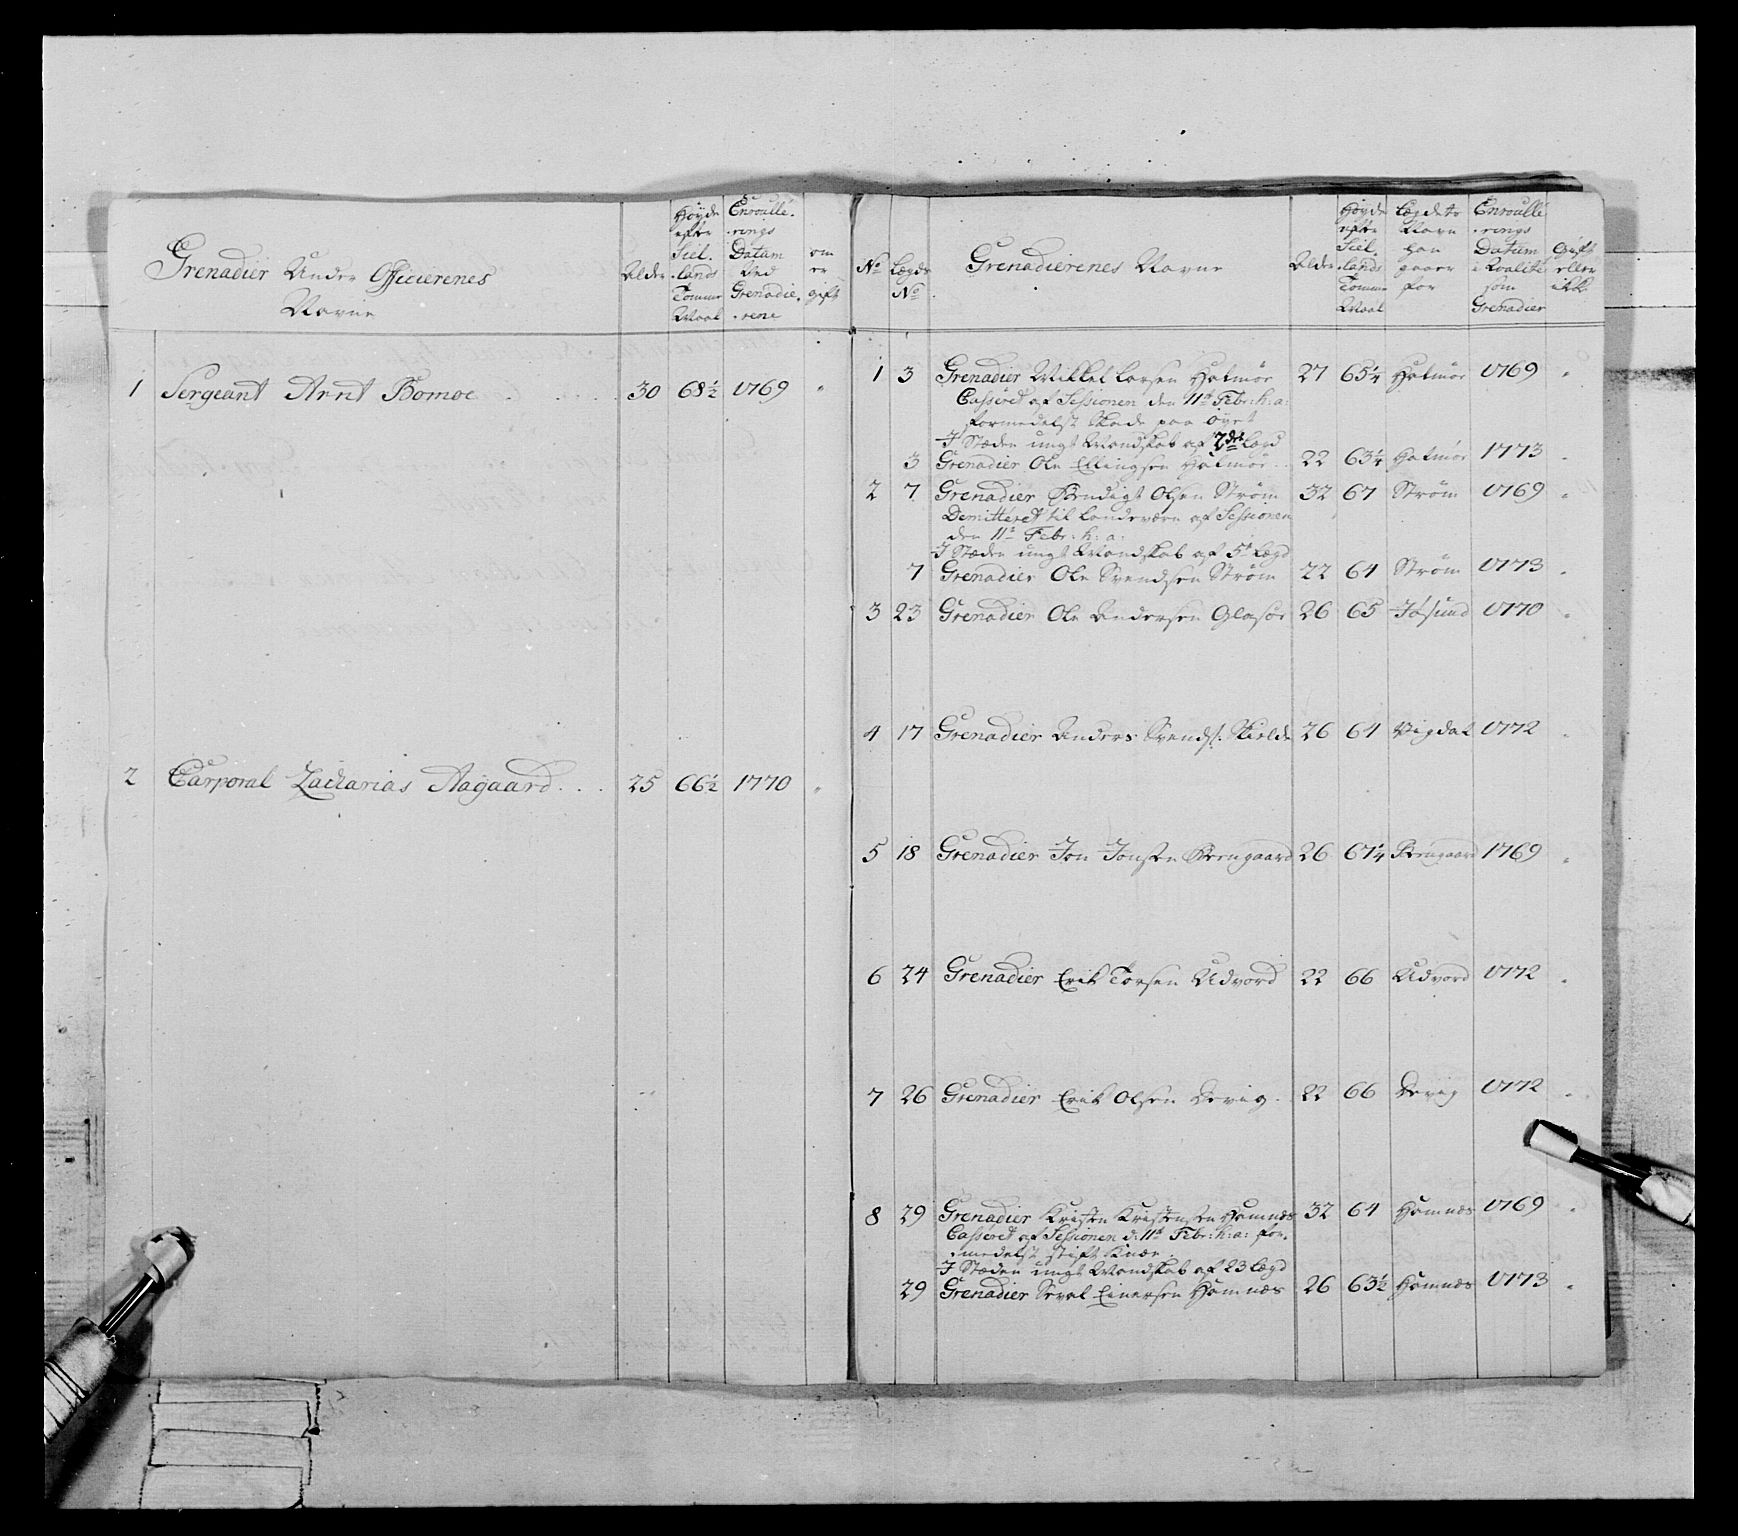 Grenadier Under Officierenes
Navne
Alder
Høyde
efter
Siel.
lands
Tomme
Maal
Enroulle.
rings
Datum
Ved
Grenadie.
rene
om
er
gift
1 Sergeant Arnt Bomoe 30 68½ 1769 "
2 Corporal Zacharias Aagaard 25 66½ 1770 "
No
Lægds
No
Grenadierenes Navne
Alder
Høyde
efter
Siel.
lands
Tomme
Maal
Lægdets
Navn
han
gaaer
for
Enroulle
rings
Datum
i Qvalité
som
Grenadier
Gift
eller
ikke
1 3 Grenadier Mikkel Larsen Hatmør 27 65¼ Hatmør 1769 "
Casseret af Sessionen den 11te Febr: h: a:
formedelst Skade paa Øyet
I Stæden ungt Mandskab af 7de Lægd
3 Grenadier Ole Ellingsen Hatmør 22 63¼ Hatmør 1773
2 7 Grenadier Bendigt Olsen Strøm 32 67 Strøm 1769 "
Demitteret til Landeværn af Sessionen
den 11te Febr: h: a:
I Stæden ungt Mandskab af 5te Lægd
7 Grenadier Ole Svendsen Strøm 22 64 Strøm 1773
3 23 Grenadier Ole Andersen Glasøe 26 65 Jøsund 1770 "
4 17 Grenadier Anders Svends: Skielde 26 64 Vigdal 1772
5 18 Grenadier Jon Jonsen Brengaard 26 67¼ Brengaard 1769 "
6 24 Grenadier Erik Torsen Udvord 22 66 Udvord 1772
7 26 Grenadier Erik Olsen Devig 22 66 Devig 1772 "
8 29 Grenadier Kristen Kristensen Hamnæs 32 64 Hamnæs 1769 "
Casseret af Sessionen d: 11te Febr: h: a: for.
medelst stift Knæe.
I Stæden ungt Mandskab af 23 Lægd
29 Grenadier Sevel Einersen Hamnæs 26 63½ Hamnæs 1773 "